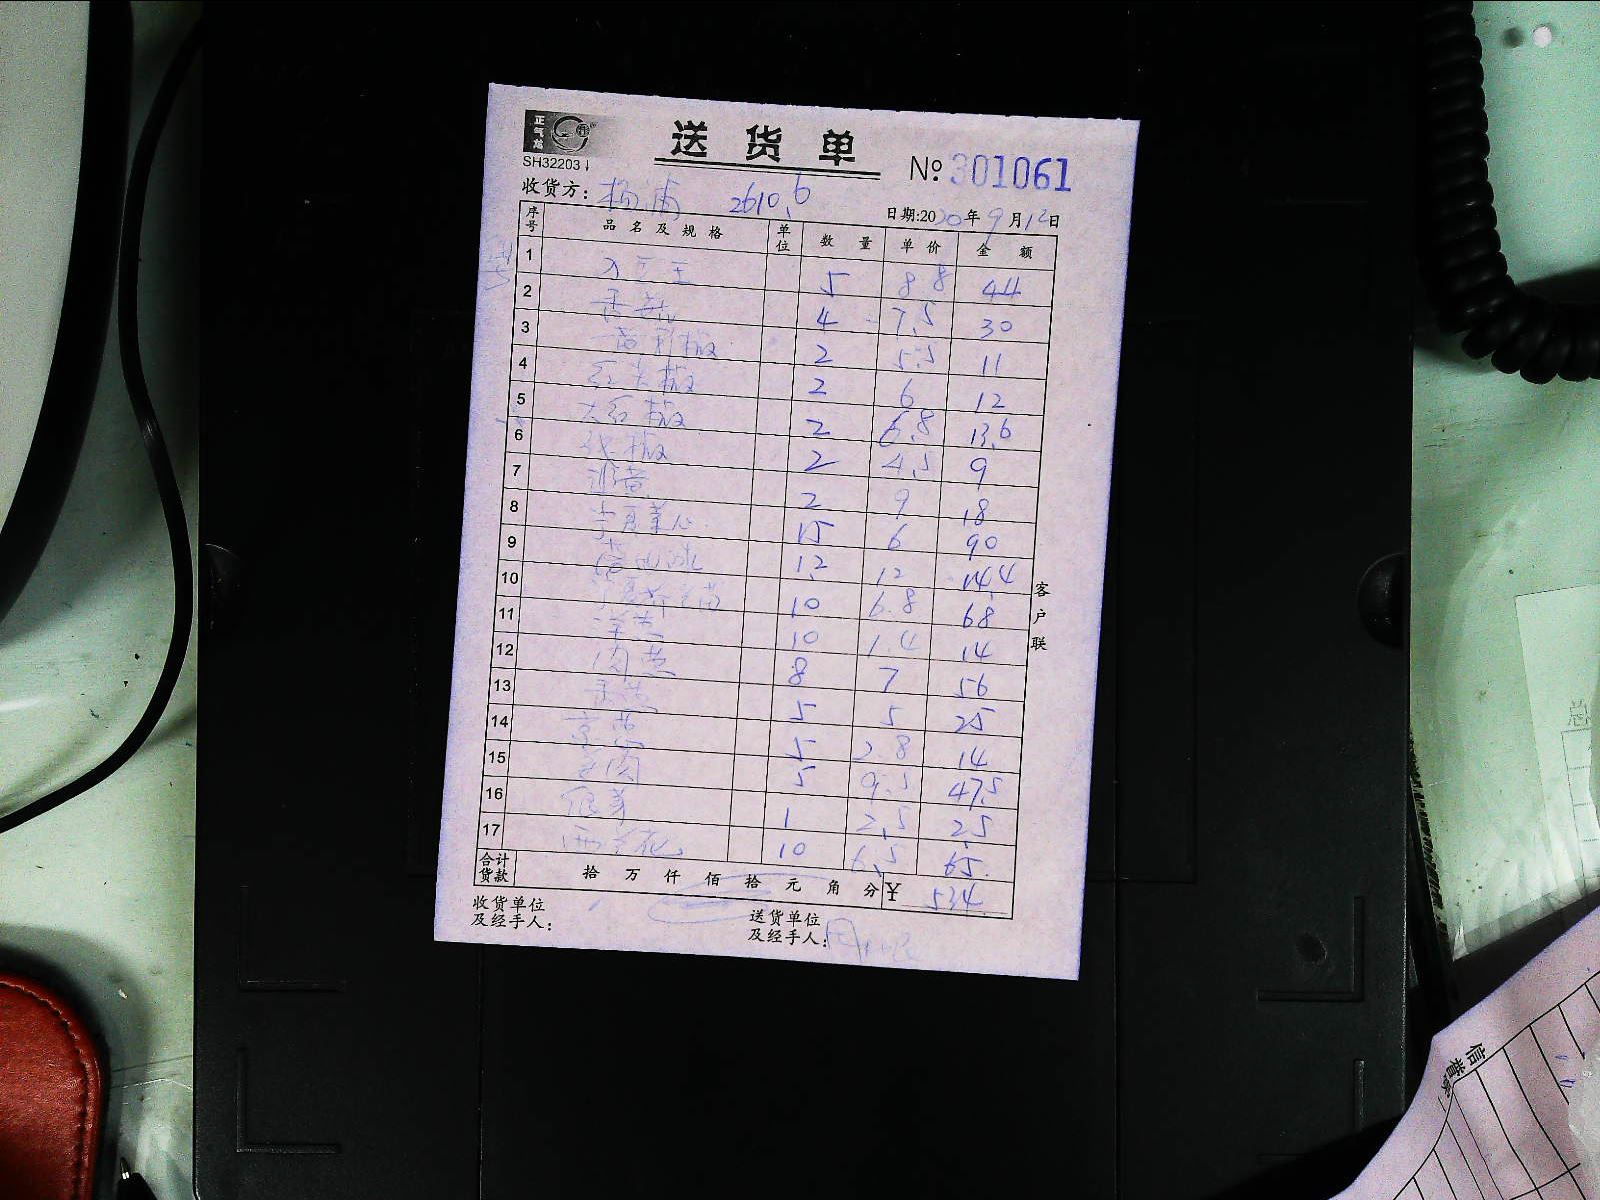 正气龙
送货单
SH32203
№ 301061
收货方: 杨浦 2610.6
日期:2020年9月12日
序号 品名及规格 单位 数量 单价 金额
1 5 8.8 44
2 4 7.5 30
3 黄彩椒 2 5.5 11
4 红尖椒 2 6 12
5 大红椒 2 6.8 13.6
6 2 4.5 9
7 2 9 18
8 宁夏菜心 15 6 90
9 1.2 12 14.4
10 10 6.8 68
11 洋葱 10 1.4 14
12 8 7 56
13 香葱 5 5 25
14 京葱 5 2.8 14
15 5 9.5 47.5
16 银芽 1 2.5 2.5
17 西兰花 10 6.5 65
合计货款 拾 万 仟 佰 拾 元 角 分 ¥ 534
收货单位及经手人:
送货单位及经手人:
客户联
信誉
总